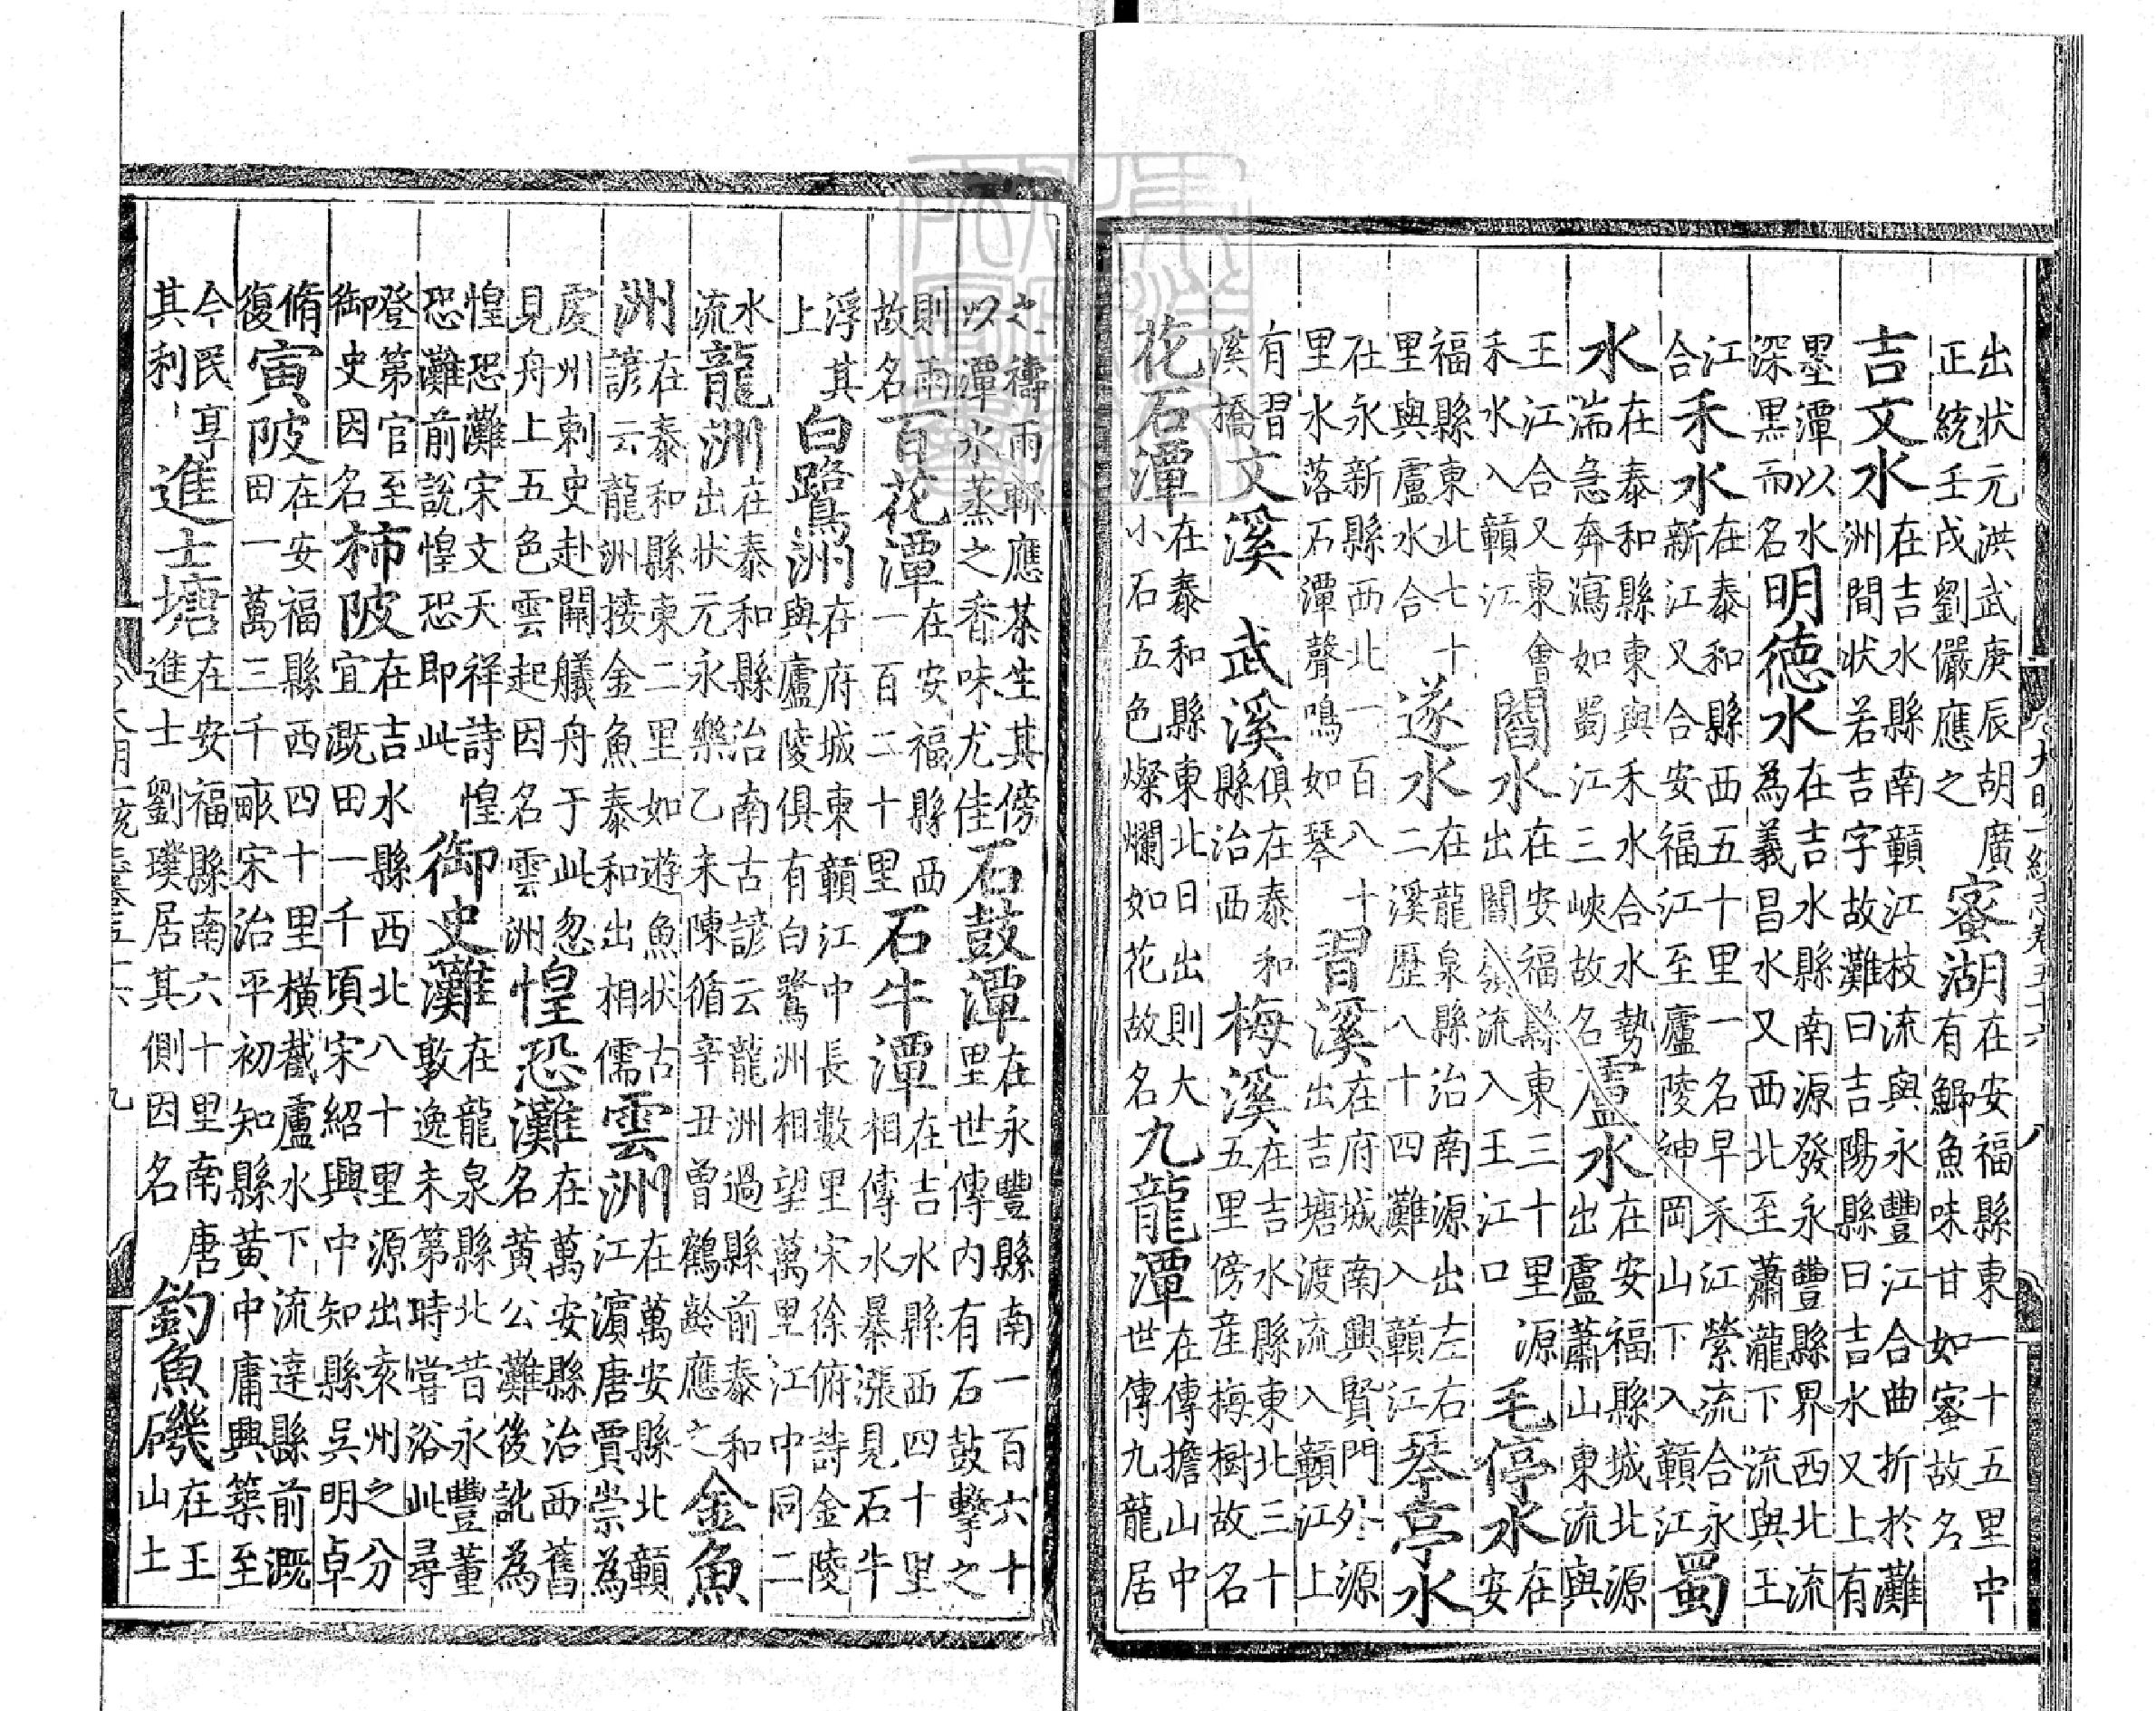 出狀元洪武庚辰胡廣正統壬戌劉儼應之蜜湖在安福縣東一十五里中有鯿魚味甘如蜜故名
吉文水在吉水縣南贛江枝流與永豐江合曲折於灘洲間状若吉字故灘曰吉陽縣曰吉水又上有
墨潭以水深黑而名明德水在吉水縣南源發永豐縣界西北流為義昌水又西北至蕭瀧下流與王
江合禾水在泰和縣西五十里一名早禾江縈流合永新江又合安福江至廬陵神岡山下入贛江蜀
水在泰和縣東與禾水合水勢湍急奔瀉如蜀江三峽故名盧水在安福縣城北源出盧蕭山東流與
王江合又東會禾水入贛江閻水在安福縣東三十里源出閻嶺流入王江口毛停水在安
福縣東北七十里與盧水合遂水在龍泉縣治南源出左右二溪歷八十四灘入贛江琴亭水
在永新縣西北一百八十里水落石潭聲鳴如琴習溪在府城南興賢門外源出吉塘渡流入贛江上
有習溪橋文溪武溪俱在泰和縣治西梅溪在吉水縣東北三十五里傍産梅樹故名
花石潭在泰和縣東北日出則大小石五色燦爛如花故名九龍潭在傳擔山中世傳九龍居
大明一統志卷五十六 八
之禱雨輒應茶生其傍以潭水蒸之香味尤佳石鼓潭在永豐縣南一百六十里世傳内有石鼓擊之
則雨故名百花潭在安福縣西一百二十里石牛潭在吉水縣西四十里相傳水暴漲見石牛
浮其上白鷺洲在府城東贛江中長數里宋徐俯詩金陵與廬陵俱有白鷺洲相望萬里江中同二
水流龍洲在泰和縣治南古諺云龍洲過縣前泰和出状元永樂乙未陳循辛丑曾鶴齡應之金魚
洲在泰和縣東二里如遊魚状古諺云龍洲接金魚泰和出相儒雲洲在萬安縣北贛江濵唐賈崇為
虔州刺史赴闕艤舟于此忽見舟上五色雲起因名雲洲惶恐灘在萬安縣治西舊名黄公灘後訛為
惶恐灘宋文天祥詩惶恐灘前說惶恐即此御史灘在龍泉縣北昔永豐董敦逸未第時嘗浴此尋
登第官至御史因名柿陂在吉水縣西北八十里源出袁州之分宜溉田一千頃宋紹興中知縣吳明卓
脩復寅陂在安福縣西四十里横截盧水下流達縣前溉田一萬三千畝宋治平初知縣黄中庸興築至
今民享其利進士塘在安福縣南六十里南唐進士劉璞居其側因名釣魚磯在王山土
大明一統志卷五十六 九